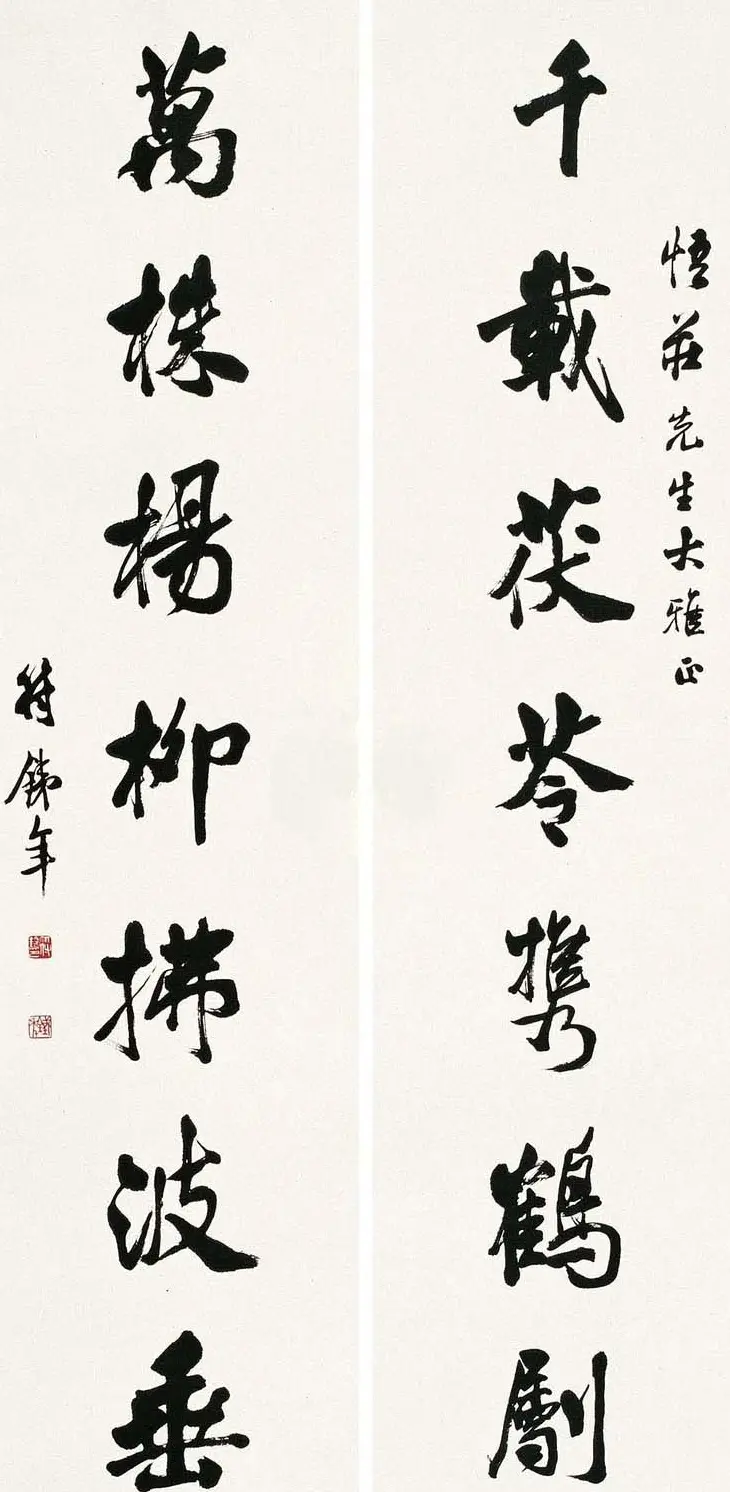 悟莊先生大雅正
千載茯苓携鶴劚
萬株楊柳拂波垂
符鐵年